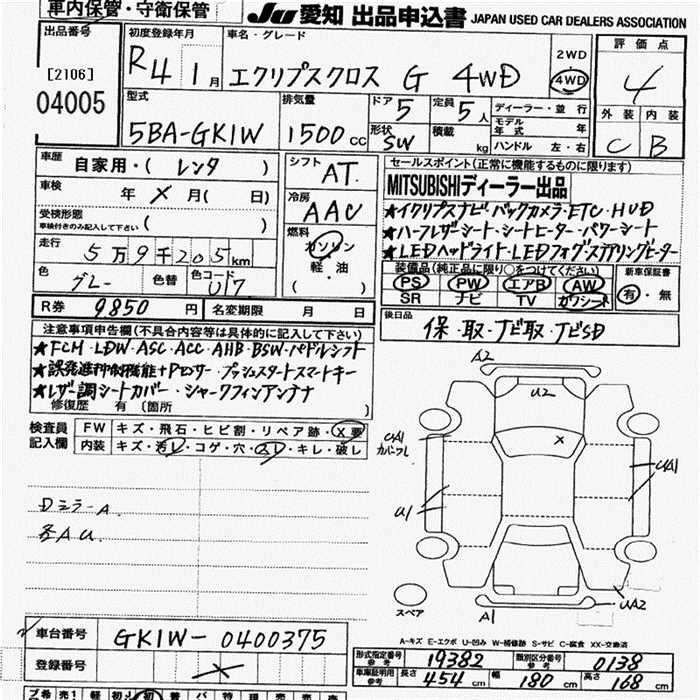 車内保管・守衛保管
JU 愛知 出品申込書 JAPAN USED CAR DEALERS ASSOCIATION
出品番号
[2106]
04005
初度登録年月
R4 1月
車名・グレード
エクリプスクロス G 4WD
2WD
4WD
評価点
4
外装 内装
C B
型式
5BA-GK1W
排気量
1500cc
ドア 5
定員 5人
形状 SW
積載 kg
ディーラー・並行
モデル年式 年
ハンドル 左・右
車歴 自家用・(レンタ)
車検 年 ×月(日)
受検形態
車検付きのみ記入して下さい ( )
走行 5万9千205km
色 グレー
色替
色コード U17
シフト AT
冷房 AAC
燃料 ガソリン
軽・油
( )
セールスポイント(正常に機能するものに限ります)
MITSUBISHIディーラー出品
★イクリプスナビ・バックカメラ・ETC・HUD
★ハーフレザーシート・シートヒーター・パワーシート
★LEDヘッドライト・LEDフォグ・ステアリングヒーター
装備品(純正品に限り○をつけてください)
PS PW エアB AW
SR ナビ TV 革シート
新車保証書
有・無
R券 9850円
名変期限 月 日
後日品
保・取・ナビ取・ナビSD
注意事項申告欄(不具合内容等は具体的に記入して下さい)
★FCM・LDW・ASC・ACC・AHB・BSW・パドルシフト
★誤発進抑制機能+Pセンサー・プッシュスタートスマートキー
★レザー調シートカバー・シャークフィンアンテナ
修復歴 有(箇所 )
検査員記入欄
FW キズ・飛石・ヒビ割・リペア跡・X要
内装 キズ・汚レ・コゲ・穴・スレ・キレ・破レ
Dミラー A
各AU
A2
U2
×
UA1
カバンフレ
UA1
U1
UA2
A1
スペア
A-キズ E-エクボ U-凹み W-補修跡 S-サビ C-腐食 XX-交換済
車台番号 GK1W-0400375
登録番号 ×
形式指定番号 参考 19382
類別区分番号 参考 0138
車庫証明用 参考 長さ 454cm 幅 180cm 高さ 168cm